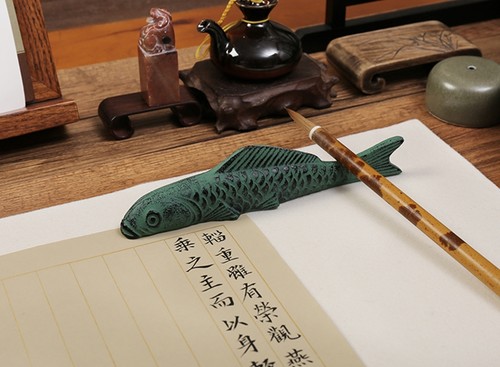 輜重雖有榮觀燕
乘之主而以身